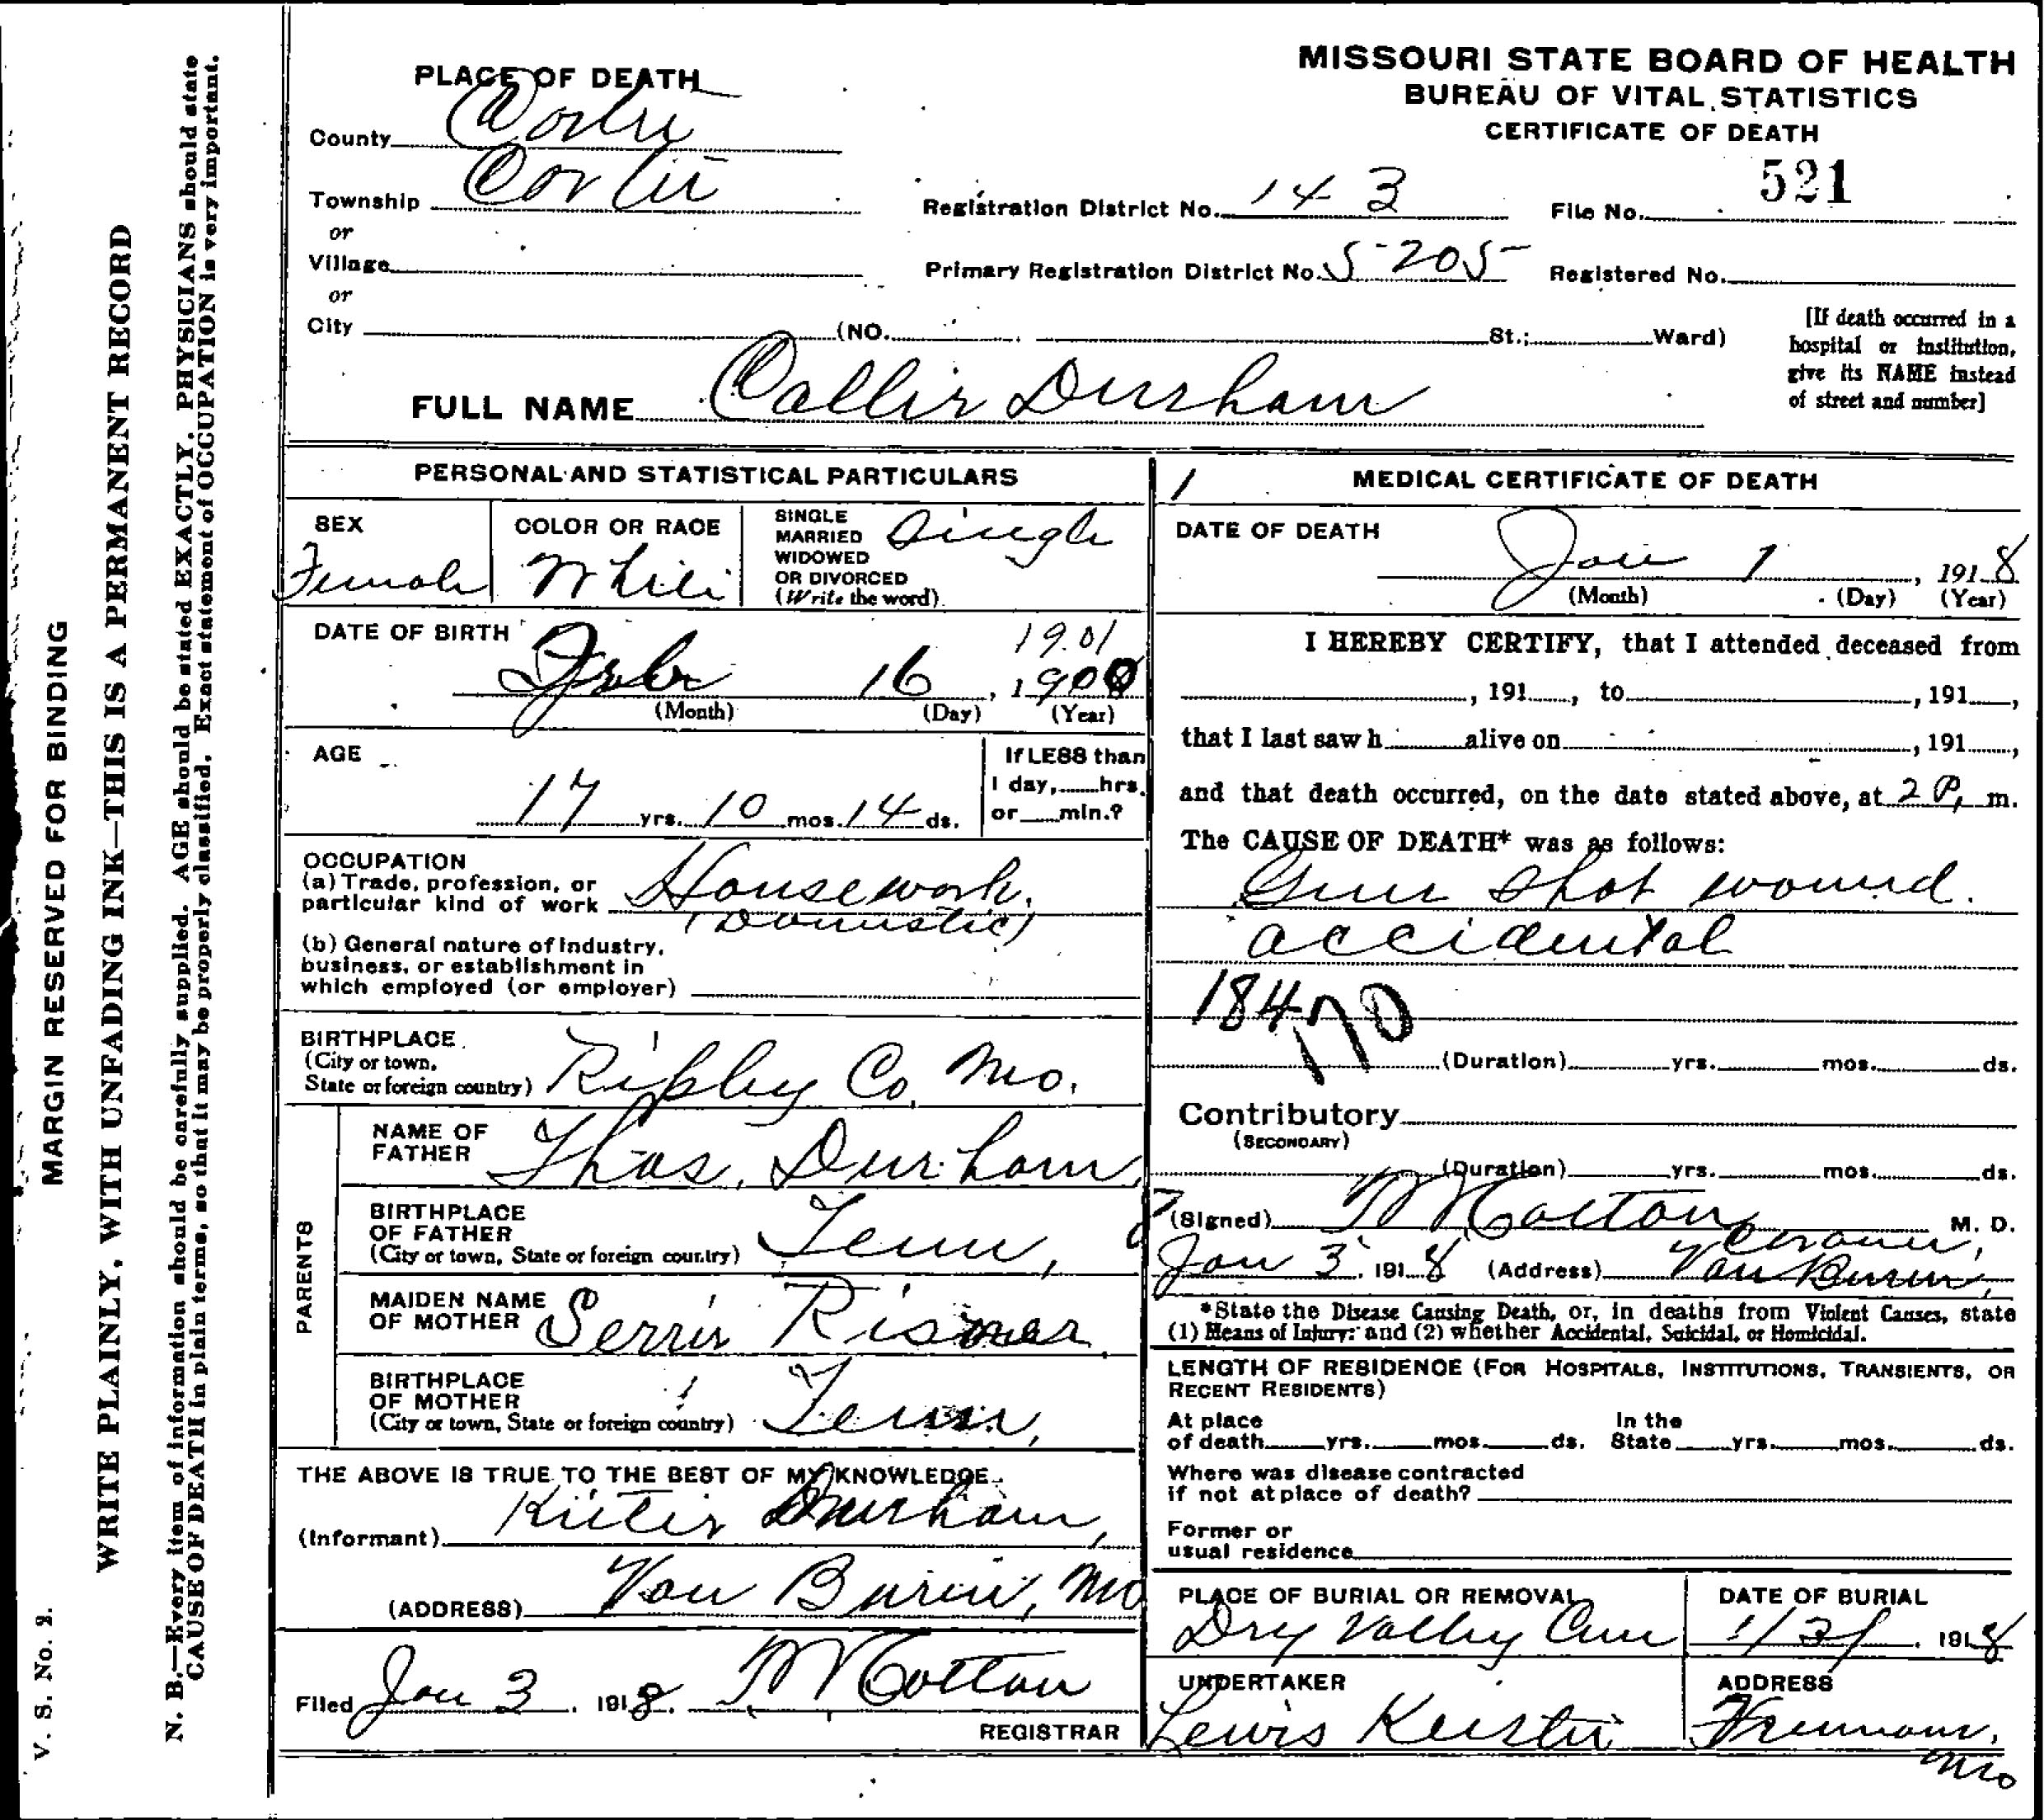 MISSOURI STATE BOARD OF HEALTH
BUREAU OF VITAL STATISTICS
CERTIFICATE OF DEATH
PLACE OF DEATH
County Carter
Township Carter
or
Village
or
City (NO. St.; Ward)
Registration District No. 143
File No. 521
Primary Registration District No. 5205
Registered No.
[If death occurred in a
hospital or institution,
give its NAME instead
of street and number]
FULL NAME Callie Durham
PERSONAL AND STATISTICAL PARTICULARS
SEX
Female
COLOR OR RACE
White
SINGLE
MARRIED
WIDOWED
OR DIVORCED
(Write the word)
Single
DATE OF BIRTH
1901
Feb 16, 1900
(Month) (Day) (Year)
AGE
17 yrs. 10 mos. 14 ds.
If LESS than
1 day, hrs.
or min.?
OCCUPATION
(a) Trade, profession, or
particular kind of work Housework,
(Domestic)
(b) General nature of industry,
business, or establishment in
which employed (or employer)
BIRTHPLACE
(City or town,
State or foreign country) Ripley Co, Mo.
PARENTS
NAME OF
FATHER Thos. Durham
BIRTHPLACE
OF FATHER
(City or town, State or foreign country) Tenn,
MAIDEN NAME
OF MOTHER
BIRTHPLACE
OF MOTHER
(City or town, State or foreign country) Tenn,
THE ABOVE IS TRUE TO THE BEST OF MY KNOWLEDGE
(Informant) Durham,
(ADDRESS) Van Buren, Mo
Filed Jan 3, 1918. M Cotton
REGISTRAR
1
MEDICAL CERTIFICATE OF DEATH
DATE OF DEATH
Jan 1, 1918
(Month) (Day) (Year)
I HEREBY CERTIFY, that I attended deceased from
, 191 , to , 191 ,
that I last saw h alive on , 191 ,
and that death occurred, on the date stated above, at 2 P, m.
The CAUSE OF DEATH* was as follows:
Gun shot wound.
accidental
184 170
(Duration) yrs. mos. ds.
Contributory
(SECONDARY)
(Duration) yrs. mos. ds.
(Signed) M Cotton M. D.
Coroner,
Jan 3, 1918 (Address) Van Buren,
*State the Disease Causing Death, or, in deaths from Violent Causes, state
(1) Means of Injury: and (2) whether Accidental, Suicidal, or Homicidal.
LENGTH OF RESIDENCE (FOR HOSPITALS, INSTITUTIONS, TRANSIENTS, OR
RECENT RESIDENTS)
At place
of death yrs. mos. ds.
In the
State yrs. mos. ds.
Where was disease contracted
if not at place of death?
Former or
usual residence
PLACE OF BURIAL OR REMOVAL
Dry Valley Cem
DATE OF BURIAL
1/3/, 1918
UNDERTAKER
Lewis
ADDRESS
Fremont,
Mo
MARGIN RESERVED FOR BINDING
WRITE PLAINLY, WITH UNFADING INK—THIS IS A PERMANENT RECORD
N. B.—Every item of information should be carefully supplied. AGE should be stated EXACTLY. PHYSICIANS should state
CAUSE OF DEATH in plain terms, so that it may be properly classified. Exact statement of OCCUPATION is very important.
V. S. No. 2.